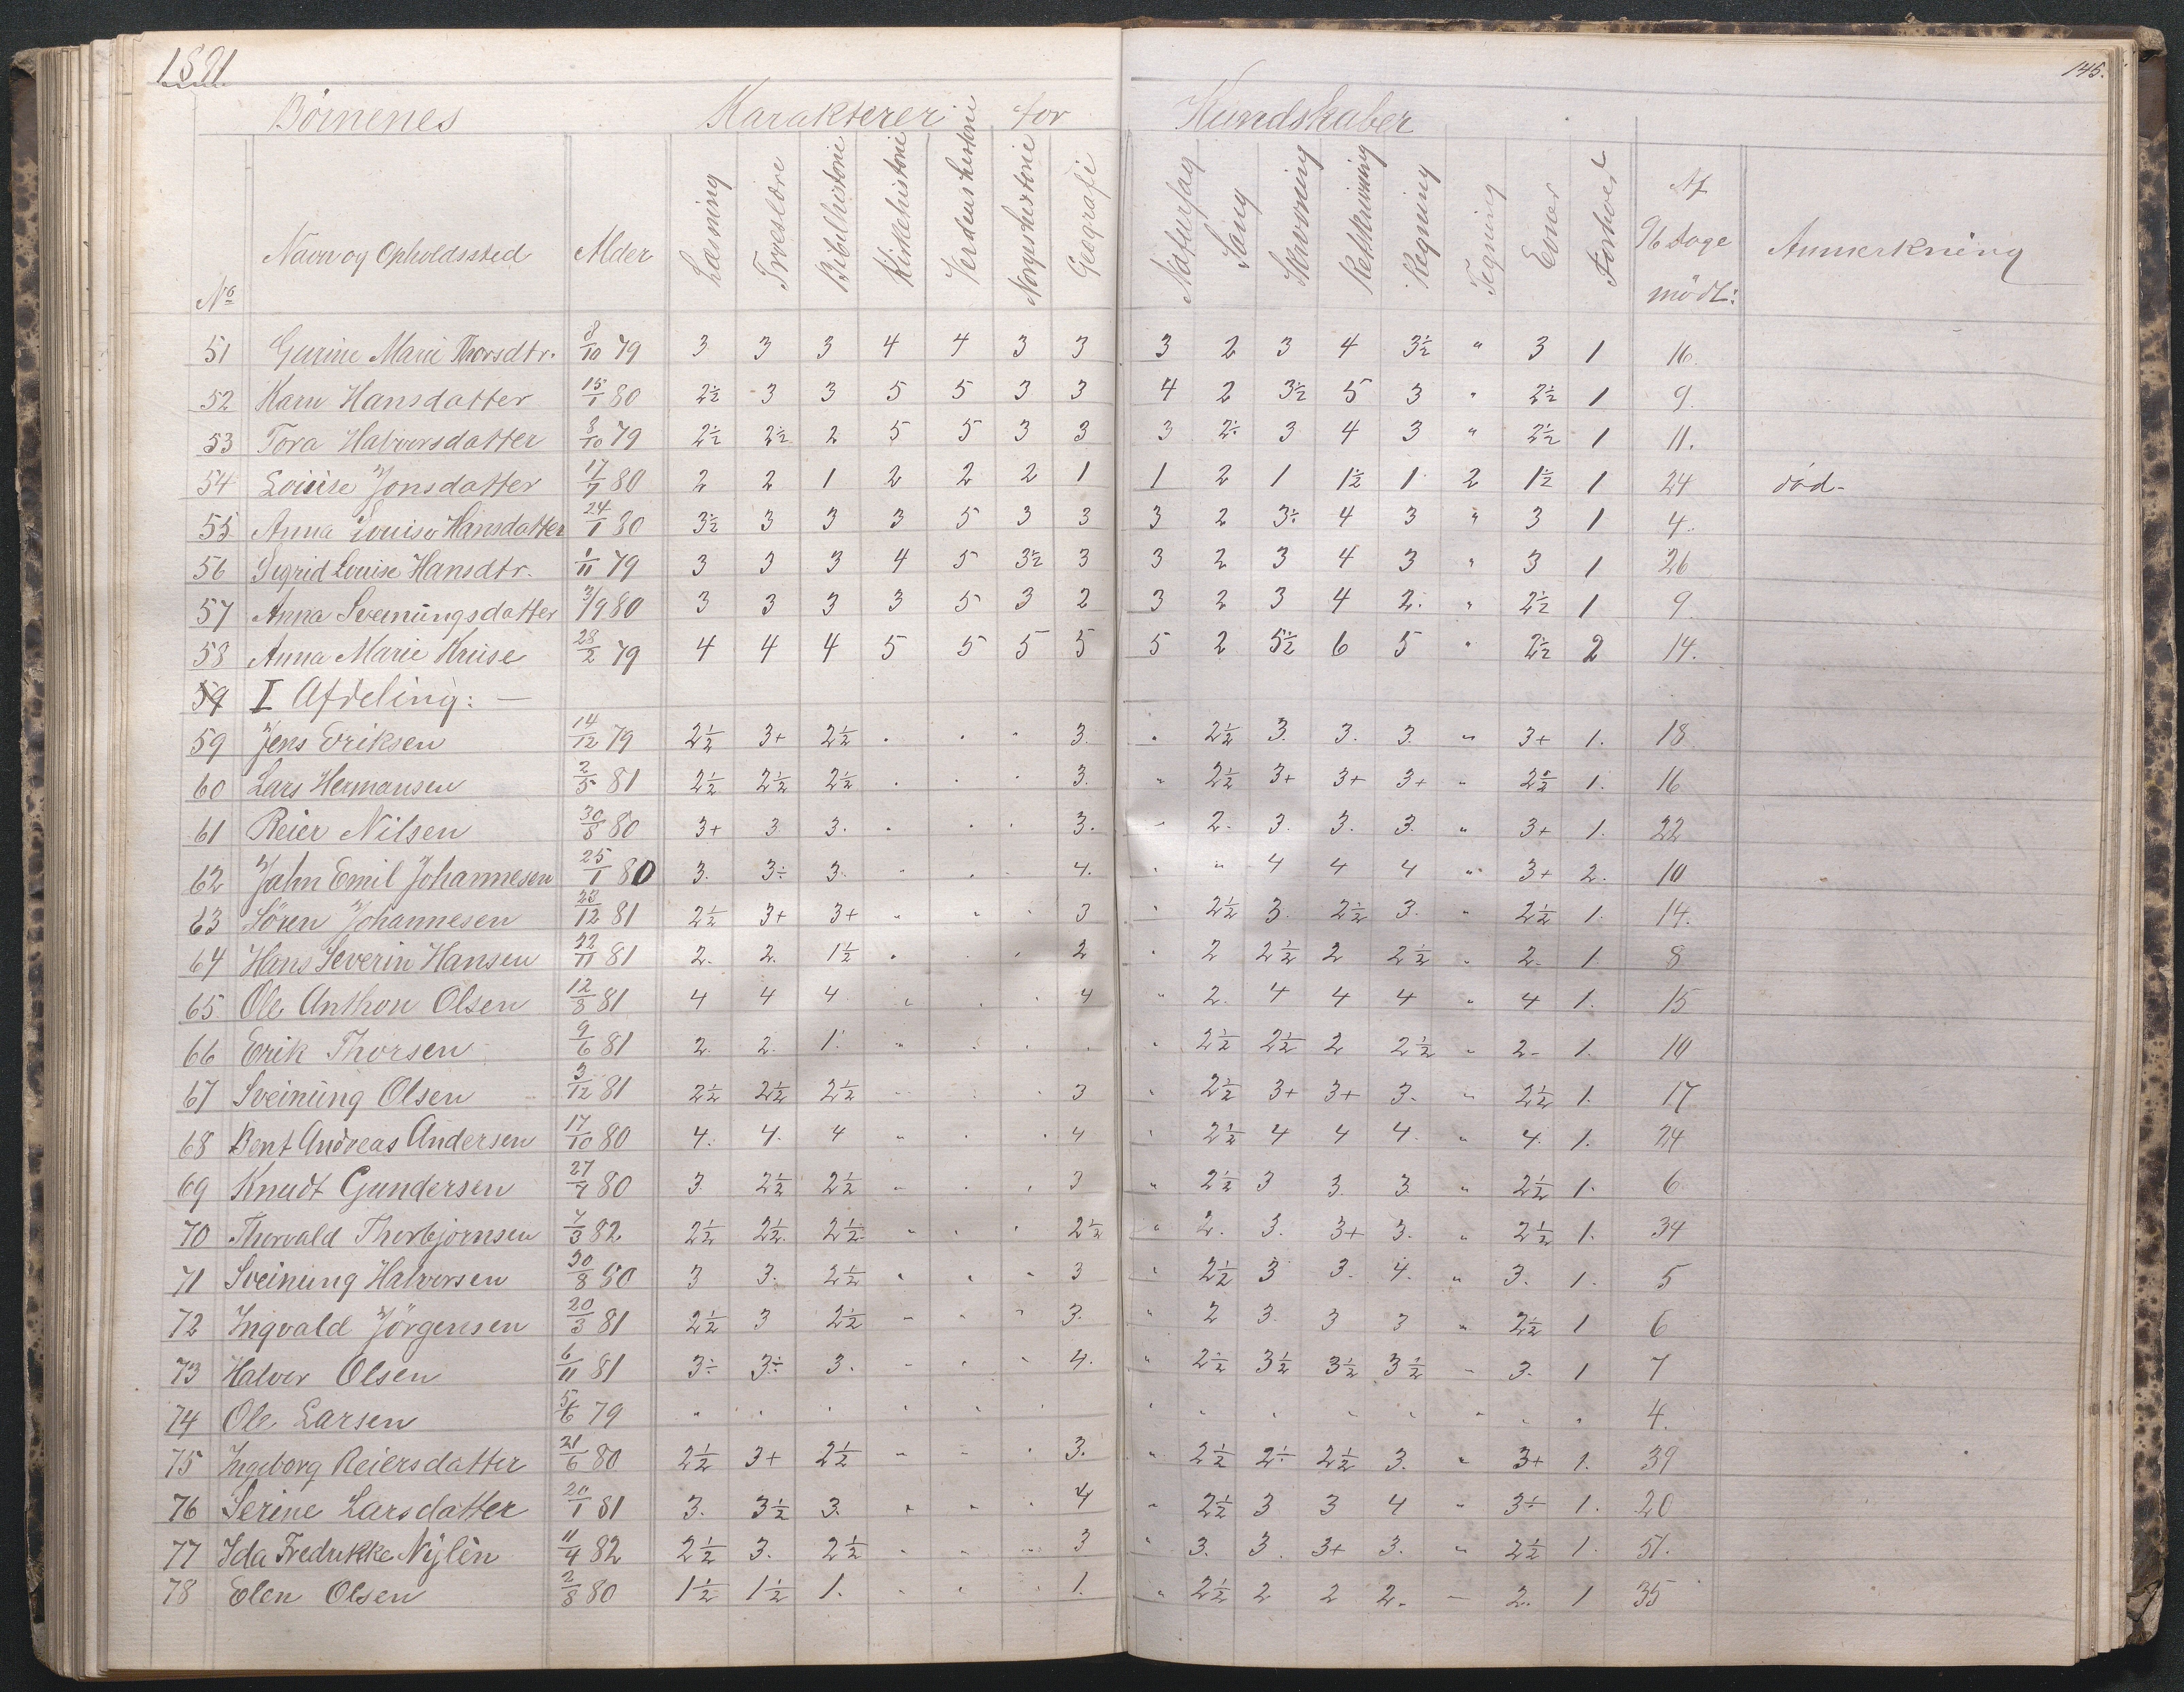 1891
145.
Börnenes Karakterer for Kundskaber
No Navn og Opholdssted Alder Læsning Troeslære Bibelhistorie Kirkehistorie Verdenshistorie Norgeshistorie Geografi Naturfag Sang Skrivning Retskrivning Regning Tegning Evner Forhold Af 96 dage mödt: Anmerkning
51 Gurine Marie Thorsdtr. 8/10 79 3 3 3 4 4 3 3 3 2 3 4 3½ " 3 1 16.
52 Karn Hansdatter 15/1 80 2½ 3 3 5 5 3 3 4 2 3½ 5 3 " 2½ 1 9.
53 Tora Halvorsdatter 8/10 79 2½ 2½ 2 5 5 3 3 3 2÷ 3 4 3 " 2½ 1 11.
54 Louise Jonsdatter 17/7 80 2 2 1 2 2 2 1 1 2 1 1½ 1 2 1½ 1 24 död-
55 Anna Louise Hansdatter 24/1 80 3½ 3 3 3 5 3 3 3 2 3÷ 4 3 " 3 1 4.
56 Sigrid Louise Hansdtr. 1/11 79 3 3 3 4 5 3½ 3 3 2 3 4 3 " 3 1 26
57 Anna Sveinungsdatter 3/9 80 3 3 3 3 5 3 2 3 2 3 4 2. " 2½ 1 9.
58 Anna Marie Kruse 28/2 79 4 4 4 5 5 5 5 5 2 5½ 6 5 " 2½ 2 14.
59 I Afdeling: —
59 Jens Eriksen 14/12 79 2½ 3+ 2½ " " " 3. " 2½ 3. 3. 3. " 3+ 1. 18
60 Lars Hermansen 2/5 81 2½ 2½ 2½ " " " 3. " 2½ 3+ 3+ 3+ " 2½ 1. 16
61 Reier Nilsen 30/8 80 3+ 3 3. " " " 3. " 2. 3. 3. 3. " 3+ 1. 22
62 Jahn Emil Johannesen 25/1 80 3. 3÷ 3. " " " 4. " " 4 4 4 " 3+ 2. 10
63 Sören Johannesen 23/12 81 2½ 3+ 3+ " " " 3 " 2½ 3. 2½ 3. " 2½ 1. 14.
64 Hans Severin Hansen 22/11 81 2. 2. 1½ " " " 2 " 2 2½ 2 2½ " 2. 1. 8
65 Ole Anthon Olsen 12/8 81 4 4 4 " " " 4 " 2. 4 4 4 " 4 1. 15
66 Erik Thorsen 9/6 81 2. 2. 1. " " " " " 2½ 2½ 2 2½ " 2- 1. 10
67 Sveinung Olsen 3/12 81 2½ 2½ 2½ " " " 3 " 2½ 3+ 3+ 3. " 2½ 1. 17
68 Bent Andreas Andersen 17/10 80 4. 4. 4 " " " 4 " 2½ 4 4 4. " 4. 1. 24
69 Knudt Gundersen 27/7 80 3 2½ 2½ " " " 3 " 2½ 3 3. 3. " 2½ 1. 6
70 Thorvald Thorbjörnsen 7/3 82 2½ 2½ 2½ " " " 2½ " 2. 3. 3+ 3. " 2½ 1. 34
71 Sveinung Halvorsen 30/8 80 3 3. 2½ " " " 3 " 2½ 3 3. 4. " 3. 1. 5
72 Ingvald Jörgensen 20/3 81 2½ 3 2½ " " " 3. " 2 3. 3 3 " 2½ 1 6
73 Halvor Olsen 6/11 81 3÷ 3÷ 3. " " " 4. " 2½ 3½ 3½ 3½ " 3. 1 7
74 Ole Larsen 5/6 79 " " " " " " " " " " " " " " 4.
75 Ingeborg Reiersdatter 21/6 80 2½ 3+ 2½ " " " 3. " 2½ 2÷ 2½ 3. " 3+ 1. 39
76 Serine Larsdatter 20/1 81 3. 3½ 3. " " " 4 " 2½ 3 3 4 " 3÷ 1. 20
77 Ida Fredrikke Nylén 11/4 82 2½ 3. 2½ " " " 3 " 3. 3. 3+ 3. " 2½ 1. 51.
78 Elen Olsen 2/8 80 1½ 1½ 1. " " " 1. " 2½ 2 2 2. " 2. 1 35